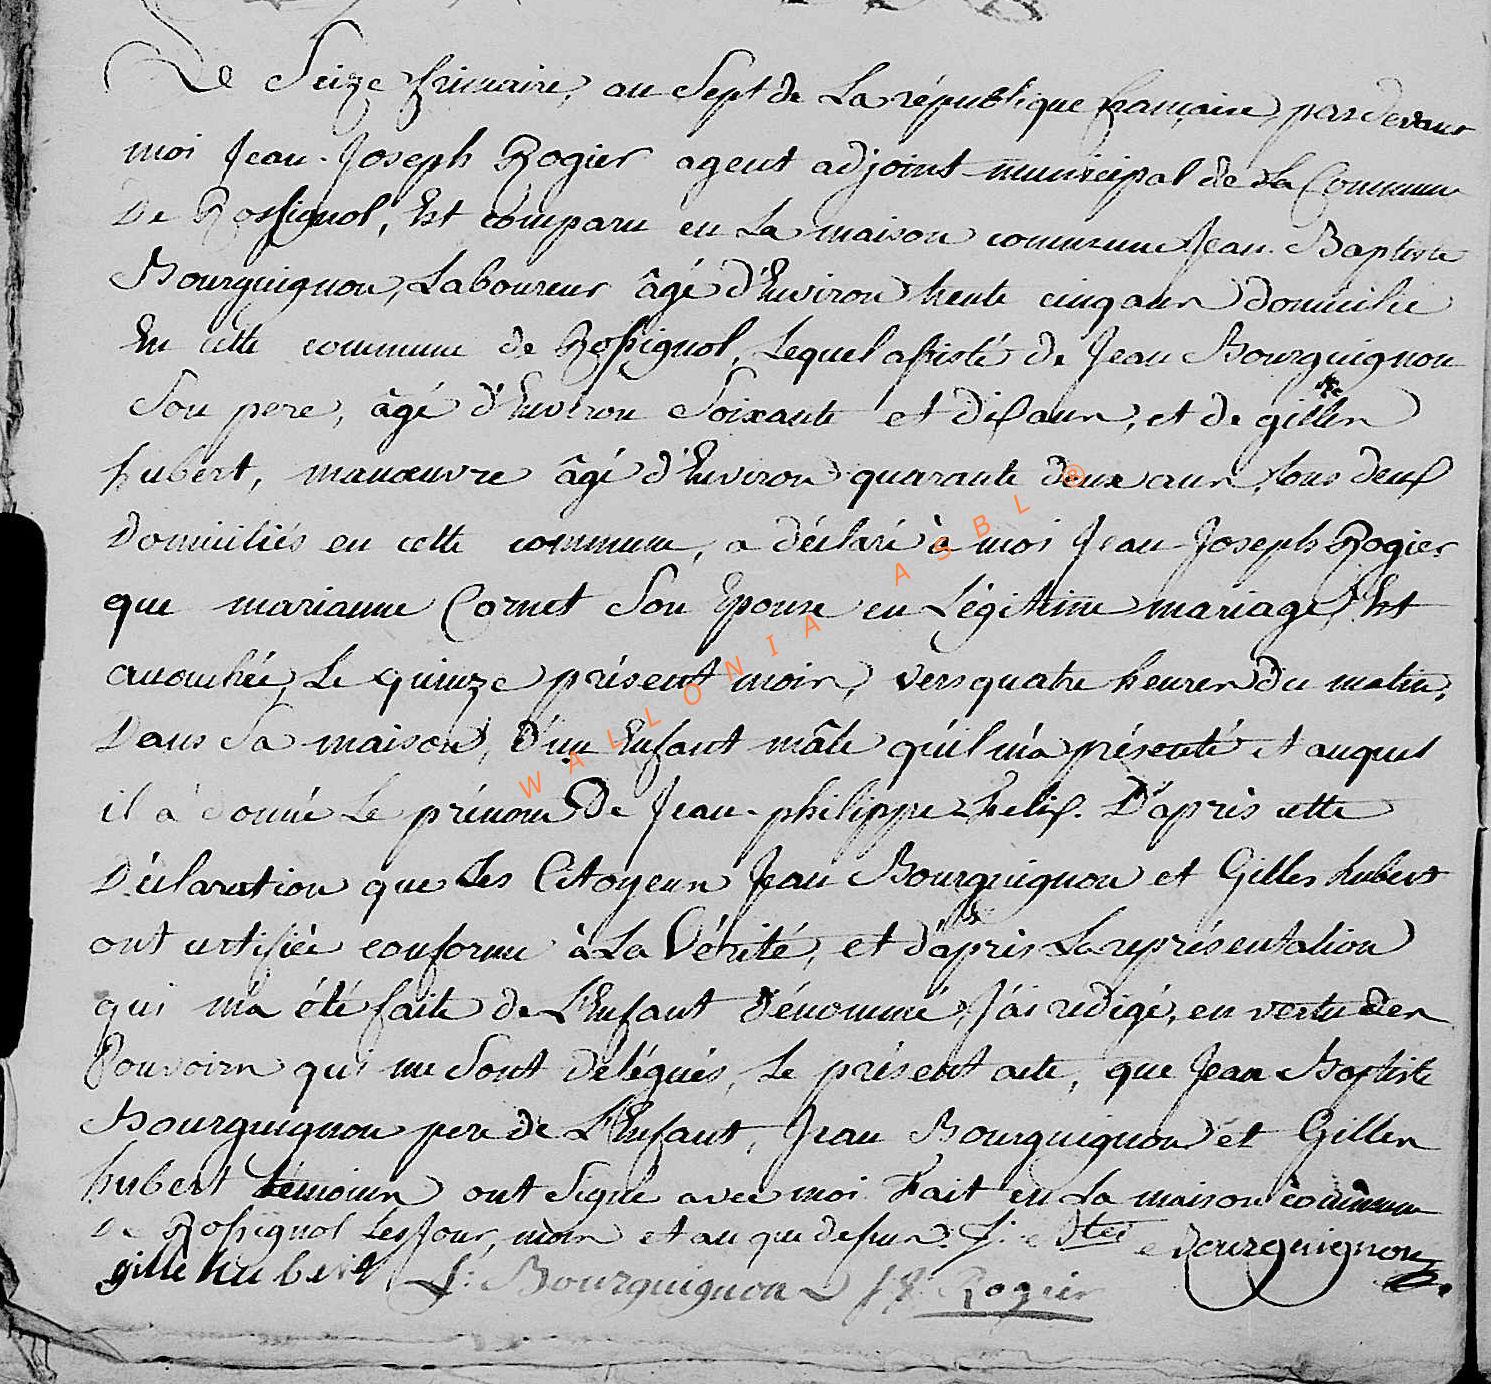 Le Seize frimaire, an Sept de La république française, pardevant
moi Jean-Joseph Rogier agent adjoint municipal de La Commune
De Rossignol, Est comparu en La maison commune Jean-Baptiste
Bourguignon, Laboureur âgé d'Environ trente cinq ans domicilié
En cette commune de Rossignol, Lequel assisté de Jean Bourguignon
Son pere, âgé d'Environ Soixante et dix ans, et de gilles
hubert, manœuvre âgé d'Environ quarante deux ans, tous deux
Domiciliés en cette commune, a déclaré à moi Jean-Joseph Rogier
que marianne Cornet Son Epouse en Légitime mariage, Est
accouchée, Le quinze présent mois, vers quatre heures du matin,
Dans Sa maison, d'un Enfant mâle qu'il m'a présenté et auquel
il à donné Le prénom De Jean-philippe Felix. D'après cette
Déclaration que Les Citoyens Jean Bourguignon et Gilles hubert
ont certifiée conforme à La Vérité, et d'après La représentation
qui m'a été faite de L'Enfant dénommé, J'ai rédigé, en vertu des
Pouvoirs qui me Sont délégués, Le présent acte, que Jean Baptiste
Bourguignon pere de L'Enfant, Jean Bourguignon et Gilles
hubert témoins ont Signé avec moi. Fait en La maison commune
De Rossignol Les Jour, mois et an que dessus. J: Bte Bourguignon
gille hubert J: Bourguignon JJ: Rogier
WALLONIA ASBL ®